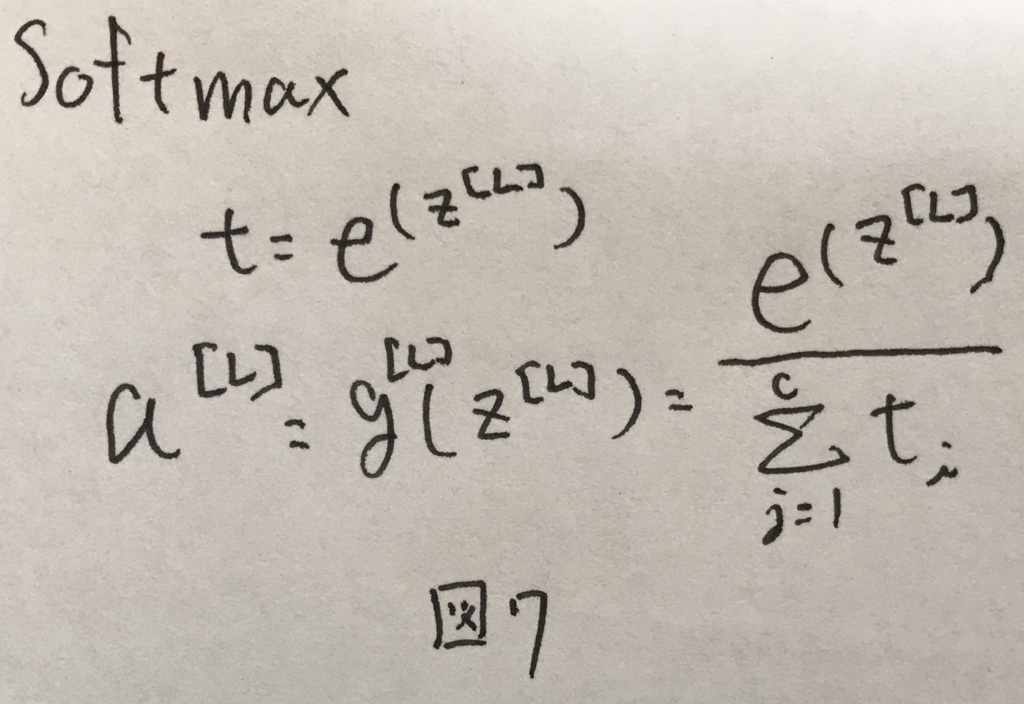 Softmax
t = e^(z^[L])
a^[L] = g^[L](z^[L]) = e^(z^[L]) / \sum_{j=1}^{c} t_i
図7